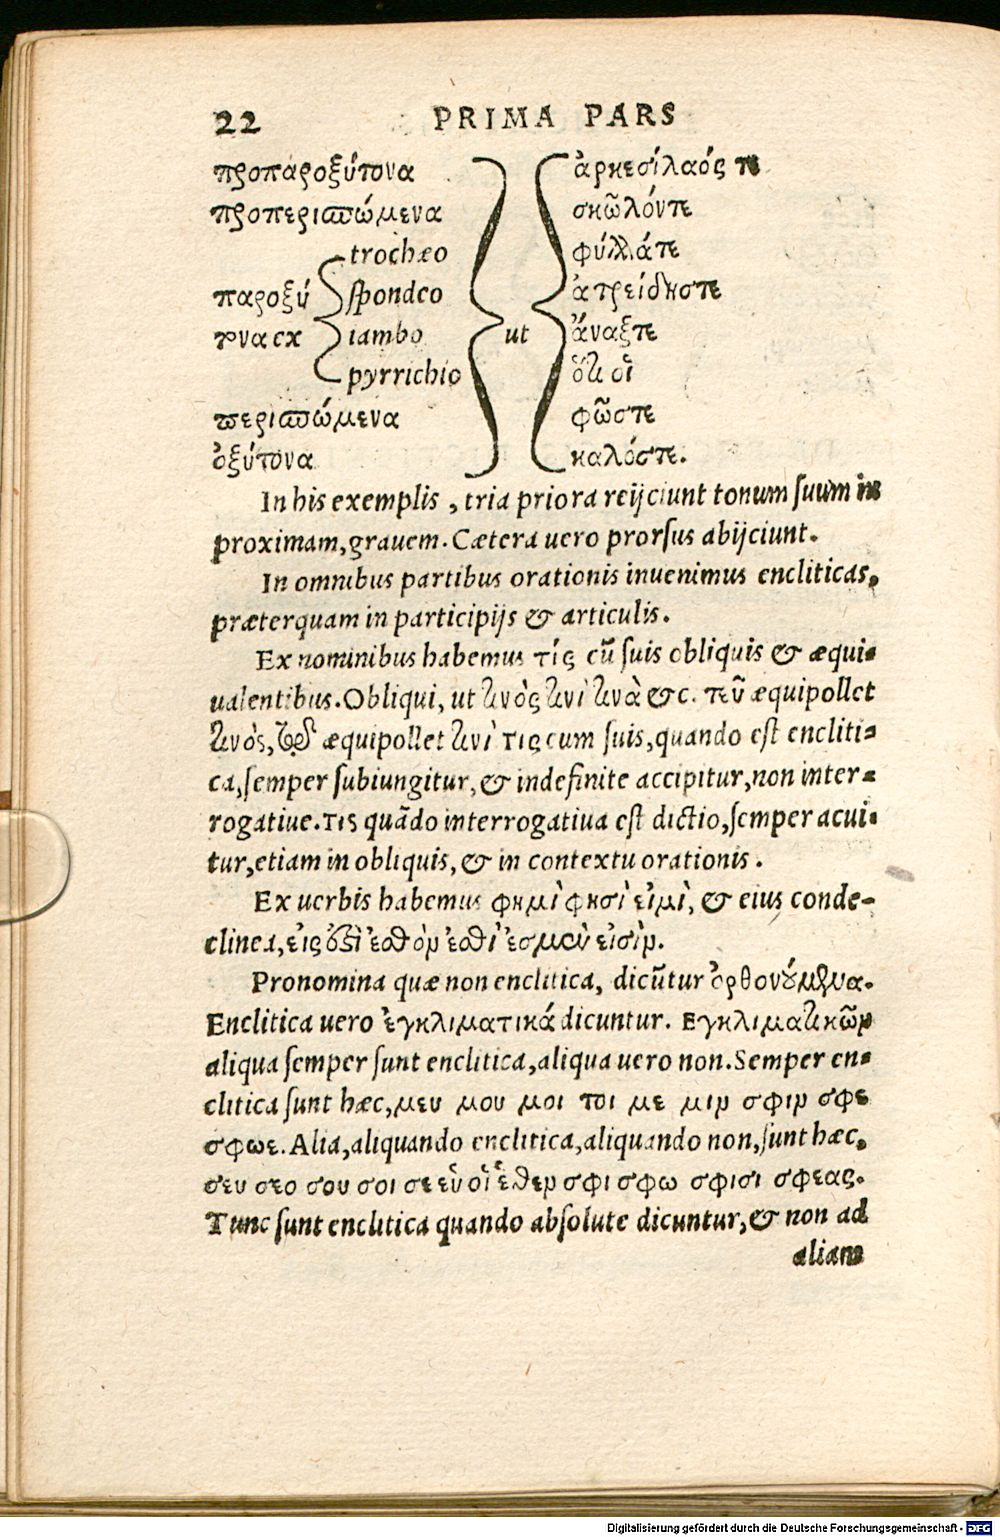 22 PRIMA PARS
προπαροξύτονα ἀρκεσίλαός τε
προπερισπώμενα σκῶλόντε
trochæo φύλλάτε
παροξύ spondeo ἀτρείδηστε
τονα ex iambo ut ἄναξτε
pyrrichio ὅτι οἱ
περισπώμενα φῶστε
ὀξύτονα καλόστε.
In his exemplis, tria priora reijciunt tonum suum in
proximam, grauem. Cætera uero prorsus abijciunt.
In omnibus partibus orationis inuenimus encliticas,
præterquam in participijs & articulis.
Ex nominibus habemus τίς cū suis obliquis & æqui-
ualentibus. Obliqui, ut τινός τινὶ τινὰ &c. τεῦ æquipollet
τινός, τῷ æquipollet τινὶ τις cum suis, quando est encliti-
ca, semper subiungitur, & indefinite accipitur, non inter-
rogatiue. τις quādo interrogatiua est dictio, semper acui-
tur, etiam in obliquis, & in contextu orationis.
Ex uerbis habemus φημὶ φησὶ εἰμὶ, & eius conde-
clinea, εἰς ἐστὶ ἐσθὸν ἐσθὶ ἐσμὲν εἰσὶν.
Pronomina quæ non enclitica, dicūtur ὀρθονούμενα.
Enclitica uero ἐγκλιματικά dicuntur. Εγκλιματικῶν
aliqua semper sunt enclitica, aliqua uero non. Semper en-
clitica sunt hæc, μευ μου μοι τοι με μιν σφιν σφε
σφωε. Alia, aliquando enclitica, aliquando non, sunt hæc,
σευ σεο σου σοι σε εὑ οἱ ἑθεν σφι σφω σφισι σφεας.
Tunc sunt enclitica quando absolute dicuntur, & non ad
aliam
Digitalisierung gefördert durch die Deutsche Forschungsgemeinschaft - DFG